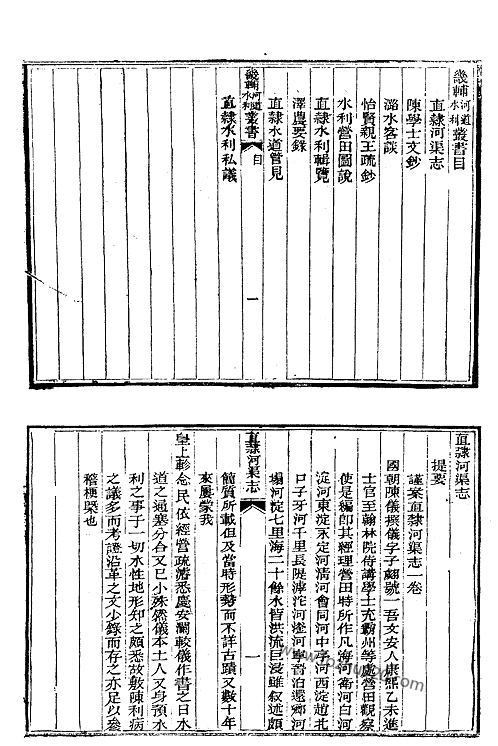 畿輔河道水利叢書目
直隸河渠志
陳學士文鈔
潞水客談
怡賢親王疏鈔
水利營田圖說
直隸水利輯覽
澤農要錄
直隸水道管見
畿輔河道水利叢書 目 一
直隸水利私議
直隸河渠志
提要
謹案直隸河渠志一卷
國朝陳儀撰儀字子翽號一吾文安人康熙乙未進
士官至翰林院侍講學士充霸州等處營田觀察
使是編卽其經理營田時所作凡海河衞河白河
淀河東淀永定河淸河會同河中亭河西淀趙北
口子牙河千里長隄滹沱河滏河寧晉泊還鄉河
塌河淀七里海二十餘水皆洪流巨浸雖叙述頗
直隸河渠志 一
簡質所載但及當時形勢而不詳古蹟又數十年
來屢蒙我
皇上軫念民依經營疏濬悉慶安瀾較儀作書之日水
道之通塞分合又已小殊然儀本土人又身預水
利之事于一切水性地形知之頗悉故敷陳利病
之議多而考證沿革之文少錄而存之亦足以參
稽梗槩也